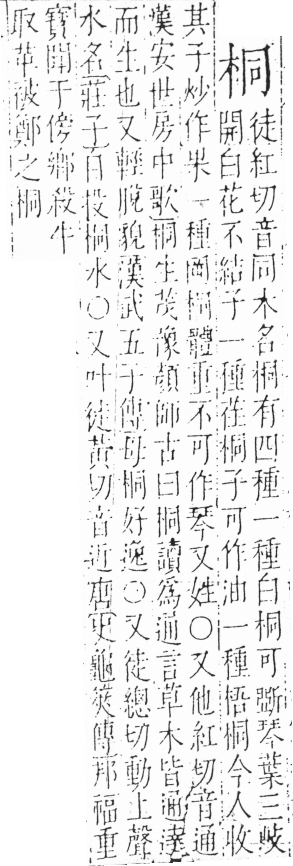 桐
徒紅切音同木名桐有四種一種白桐可斵琴葉三岐
開白花不結子一種荏桐子可作油一種梧桐今人收
其子炒作果一種岡桐體重不可作琴又姓○又他紅切音通
漢安世房中歌桐生茂豫顏師古曰桐讀爲通言草木皆通達
而生也又輕脫貌漢武五子傳毋桐好逸○又徒總切動上聲
水名莊子自投桐水○又叶徒黃切音近唐史龜筴傳邦福重
寶聞于傍鄉殺牛
取革被鄭之桐